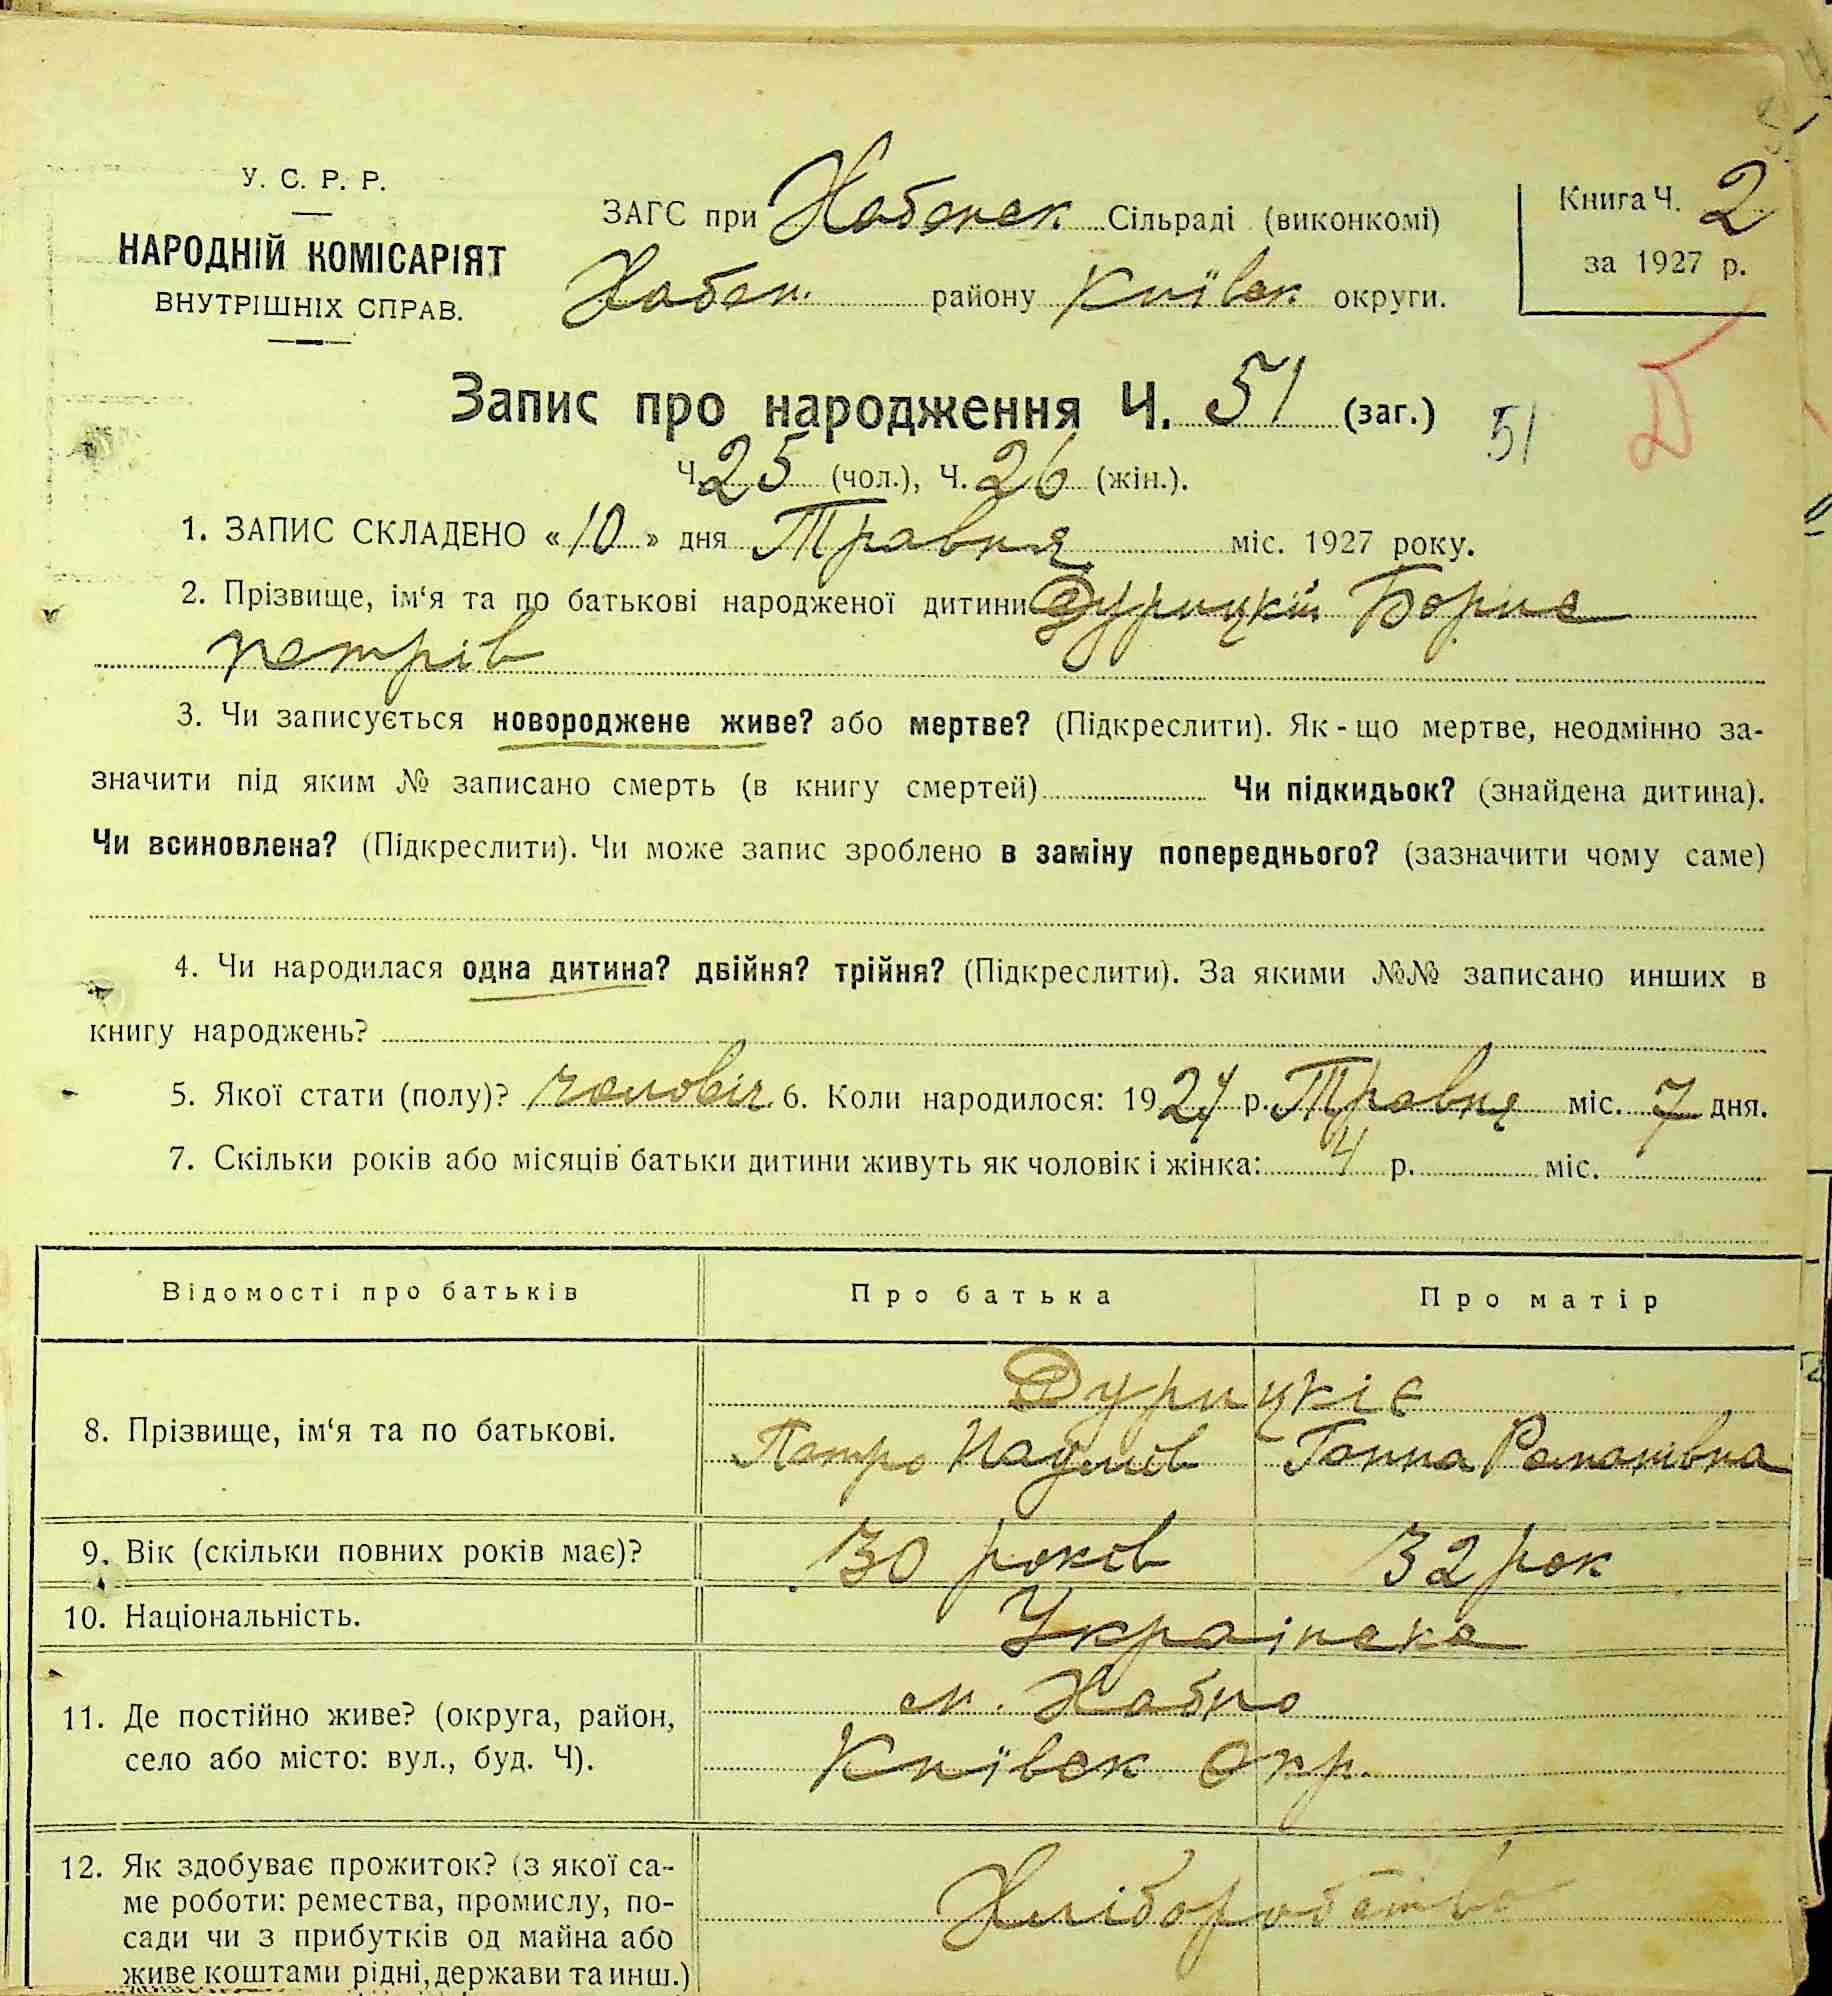 У. С. Р. Р.
НАРОДНІЙ КОМІСАРІЯТ
ВНУТРІШНІХ СПРАВ.
ЗАГС при Хабенськ Сільраді (виконкомі)
Хабен. району Київськ округи.
Книга Ч. 2
за 1927 р.
Запис про народження Ч. 51 (заг.) 51
Ч. 25 (чол.), Ч. 26 (жін.).
1. ЗАПИС СКЛАДЕНО «10» дня Травня міс. 1927 року.
2. Прізвище, ім‘я та по батькові народженої дитини Дурицкій Борис
петрів
3. Чи записується новороджене живе? або мертве? (Підкреслити). Як-що мертве, неодмінно за-
значити під яким № записано смерть (в книгу смертей) Чи підкидьок? (знайдена дитина).
Чи всиновлена? (Підкреслити). Чи може запис зроблено в заміну попереднього? (зазначити чому саме)
4. Чи народилася одна дитина? двійня? трійня? (Підкреслити). За якими №№ записано инших в
книгу народжень?
5. Якої стати (полу)? чоловіч 6. Коли народилося: 1927 р. Травня міс. 7 дня.
7. Скільки років або місяців батьки дитини живуть як чоловік і жінка: 4 р. міс.
Відомості про батьків Про батька Про матір
Дурицкіє
8. Прізвище, ім‘я та по батькові. Петро Наумів Ганна Романівна
9. Вік (скільки повних років має)? 30 років 32 рок
10. Національність. Українське
м. Хабно
11. Де постійно живе? (округа, район,
село або місто: вул., буд. Ч). Київськ Окр.
12. Як здобуває прожиток? (з якої са-
ме роботи: ремества, промислу, по- Хліборобство
сади чи з прибутків од майна або
живе коштами рідні, держави та инш.)